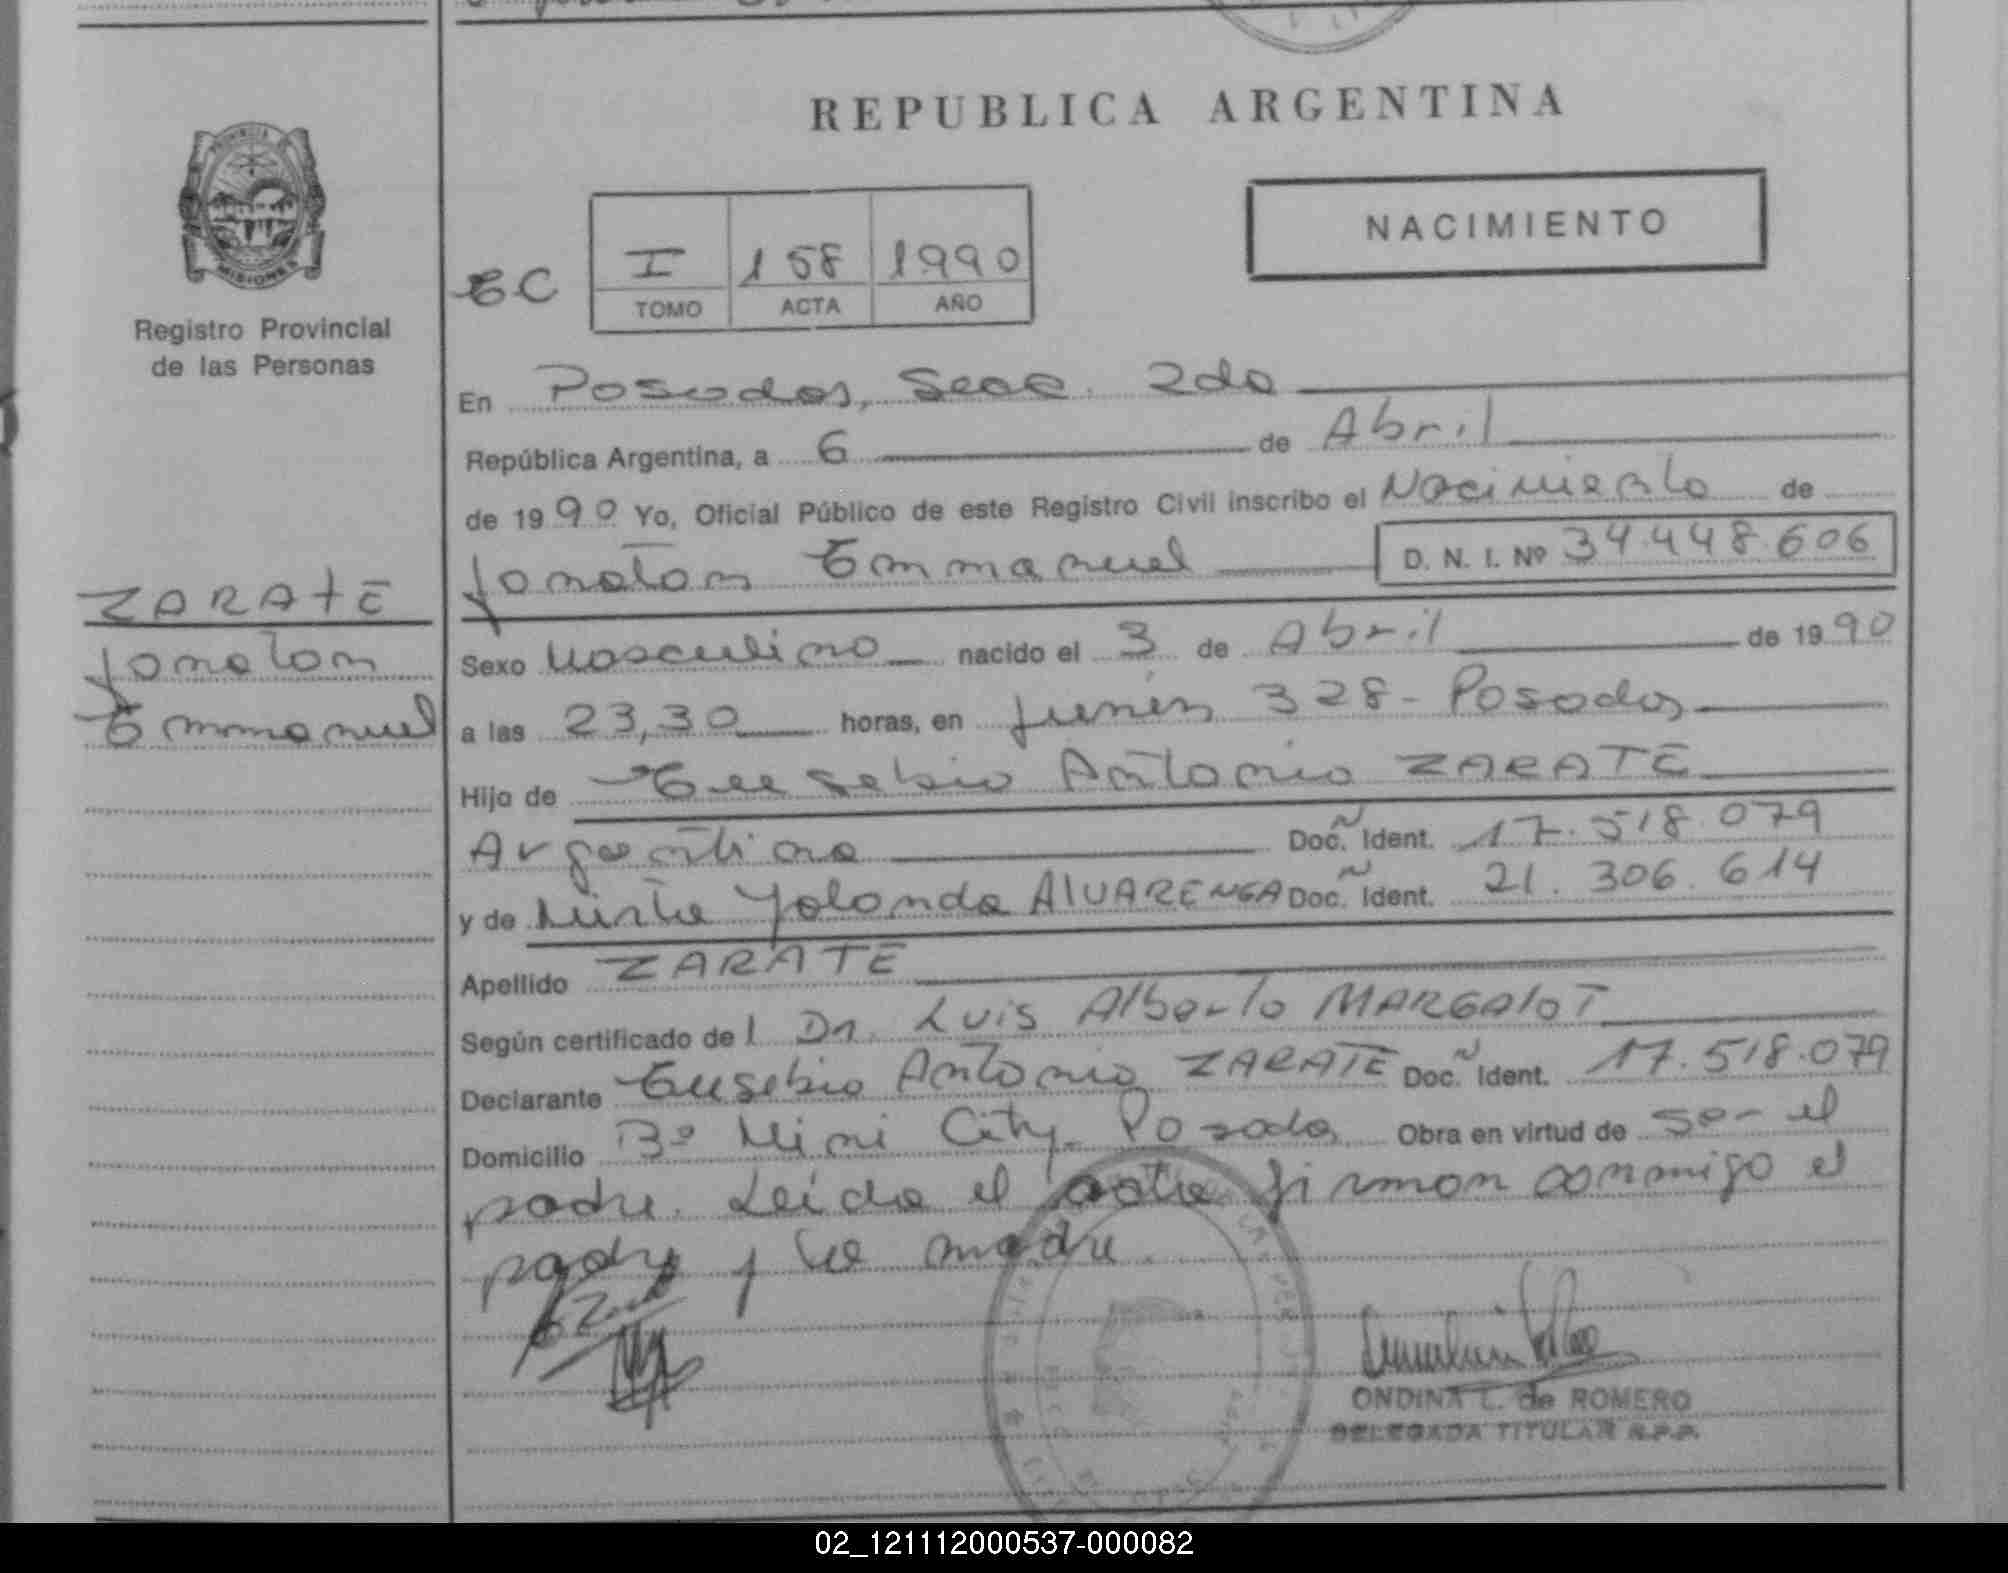 REPUBLICA ARGENTINA
NACIMIENTO
PROVINCIA
MISIONES
Registro Provincial
de las Personas
EC
I 158 1990
TOMO ACTA AÑO
En Posadas, Secc. 2da
República Argentina, a 6 de Abril
de 1990 Yo, Oficial Público de este Registro Civil inscribo el Nacimiento de
Jonatan Emmanuel D. N. I. Nº 34.448.606
ZARATE
Jonatan
Emmanuel
Sexo Masculino nacido el 3 de Abril de 1990
a las 23,30 horas, en Junín 328 - Posadas
Hijo de Eusebio Antonio ZARATE
Argentino Doc. Ident. 17.518.079
y de Mirta Yolanda ALVARENGA Doc. Ident. 21.306.614
Apellido ZARATE
Según certificado del Dr. Luis Alberto MARGALOT
Declarante Eusebio Antonio ZARATE Doc. Ident. 17.518.079
Domicilio Bº Mini City. Posadas Obra en virtud de ser el
padre. Leída el acta firman conmigo el
padre y la madre.
ONDINA L. de ROMERO
DELEGADA TITULAR R.P.P.
02_121112000537-000082